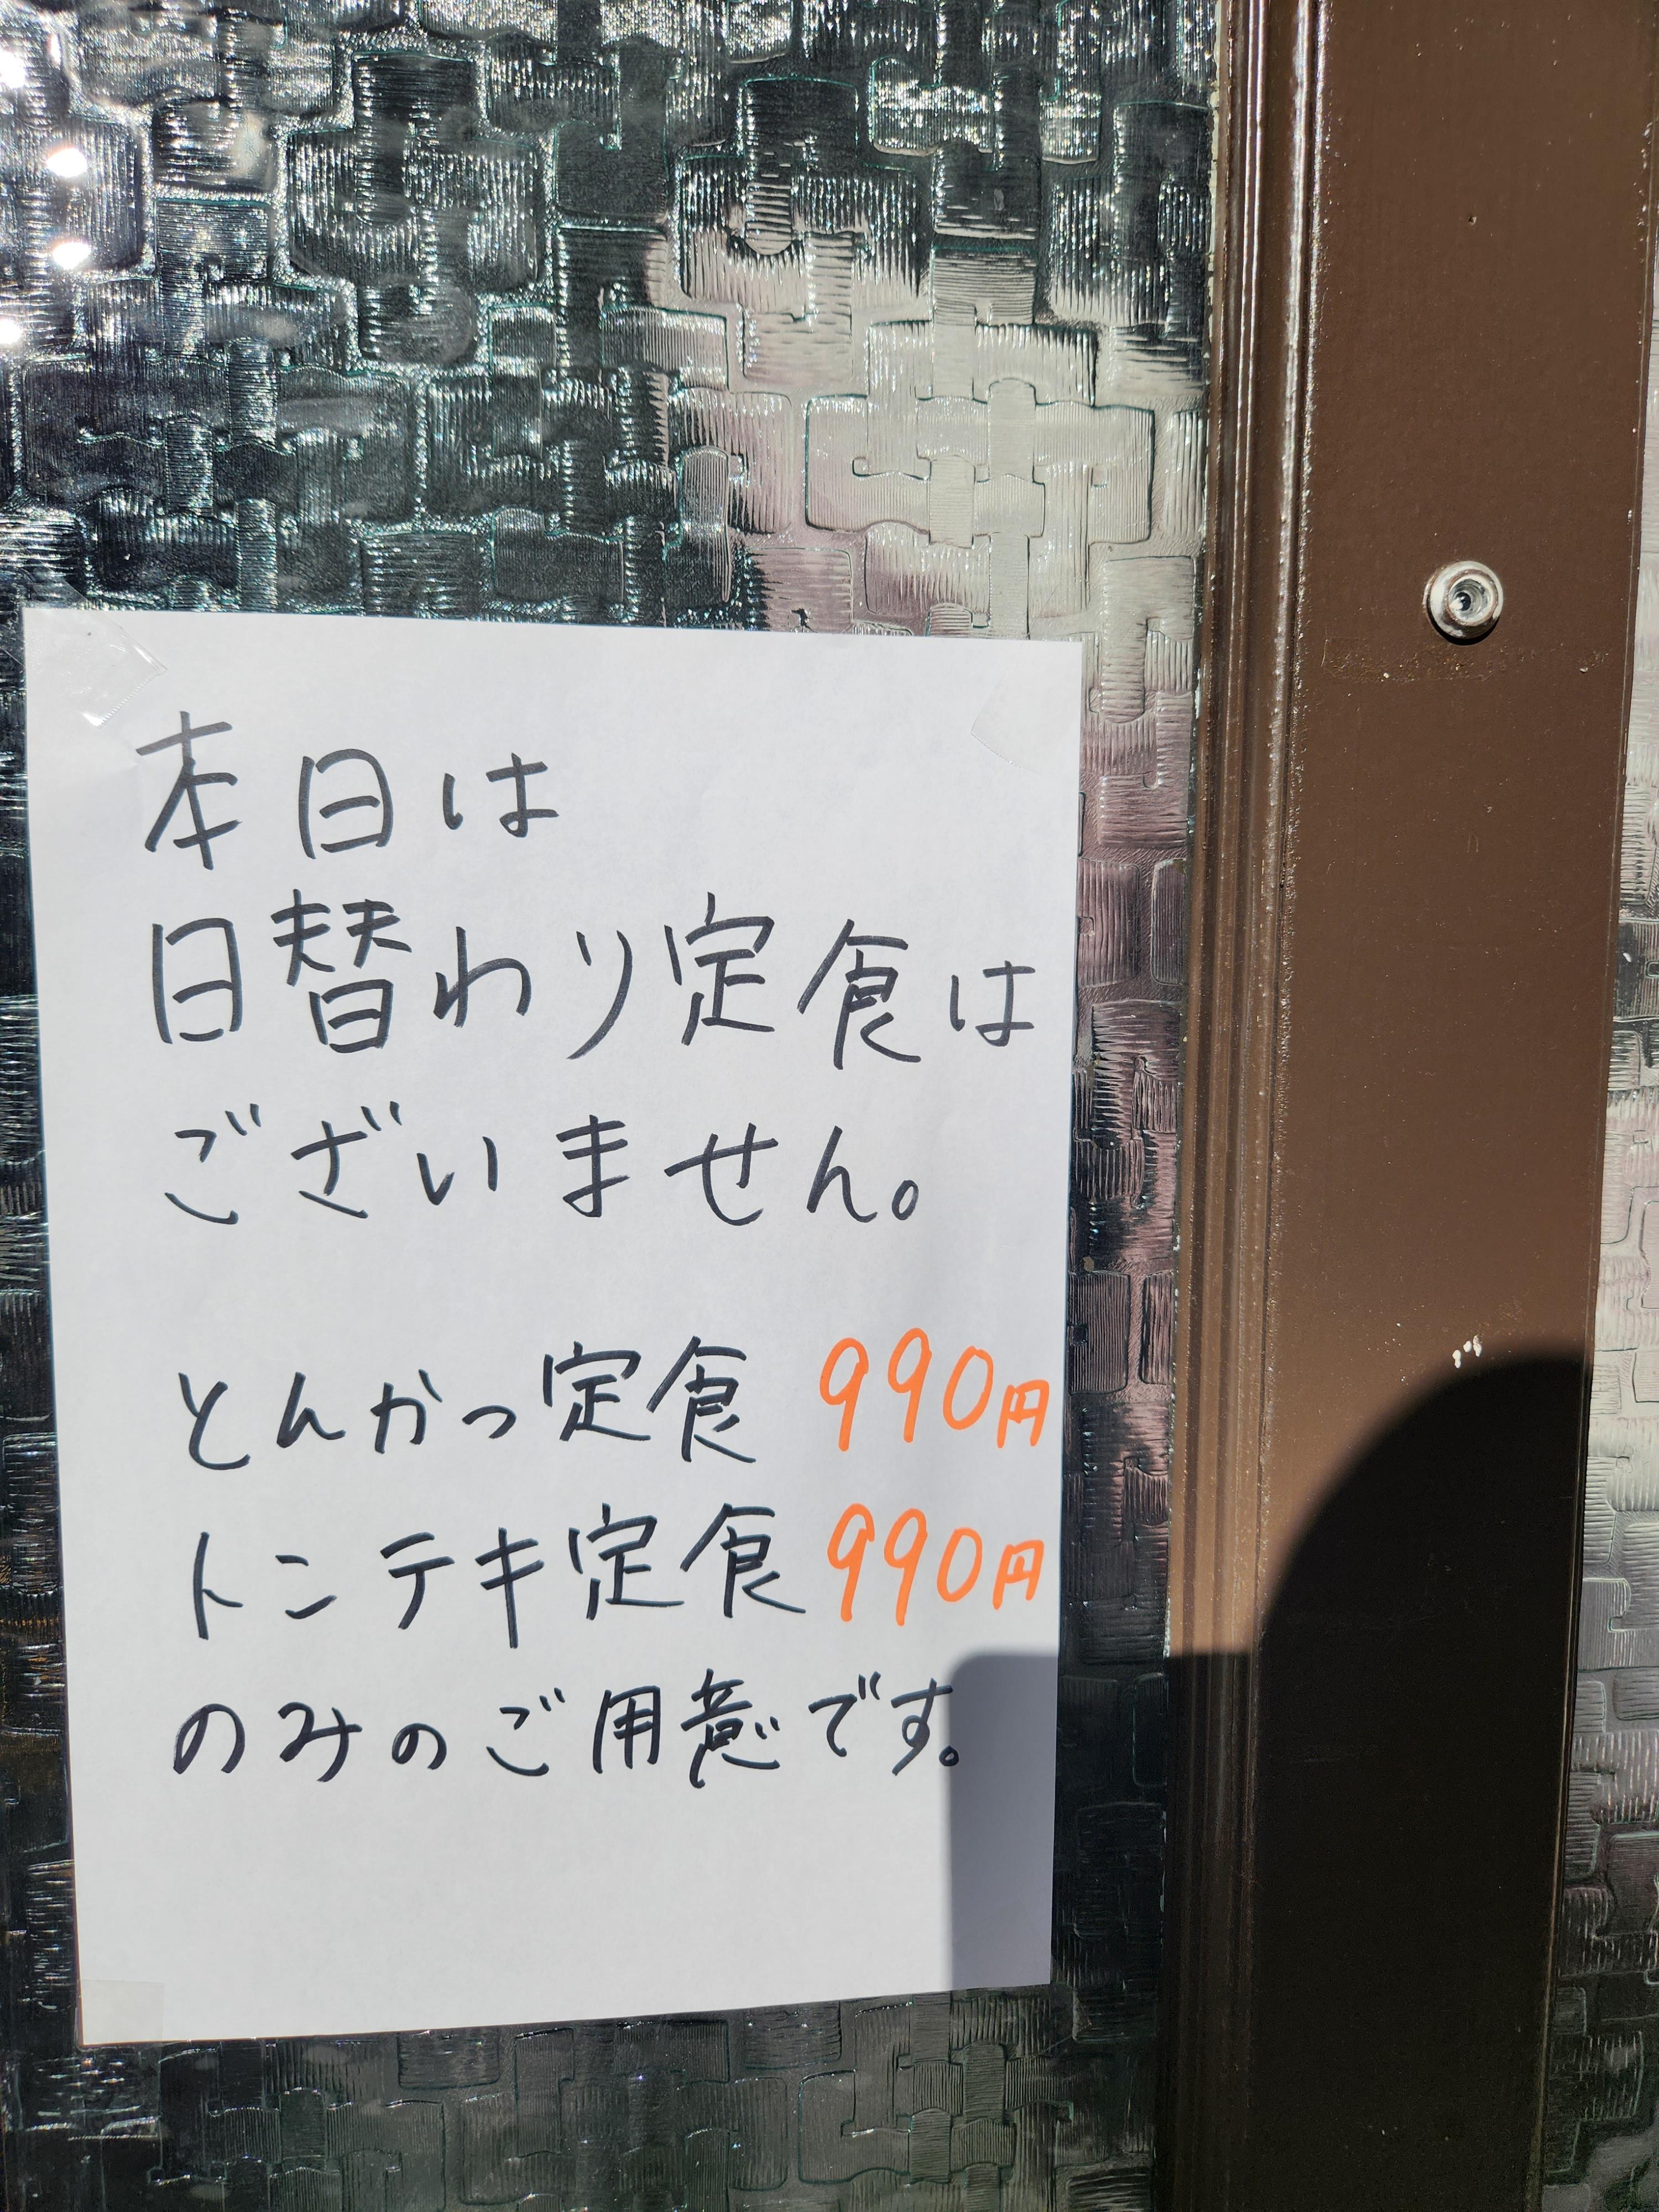 本日は
日替わり定食は
ございません。
とんかつ定食 990円
トンテキ定食 990円
のみのご用意です。